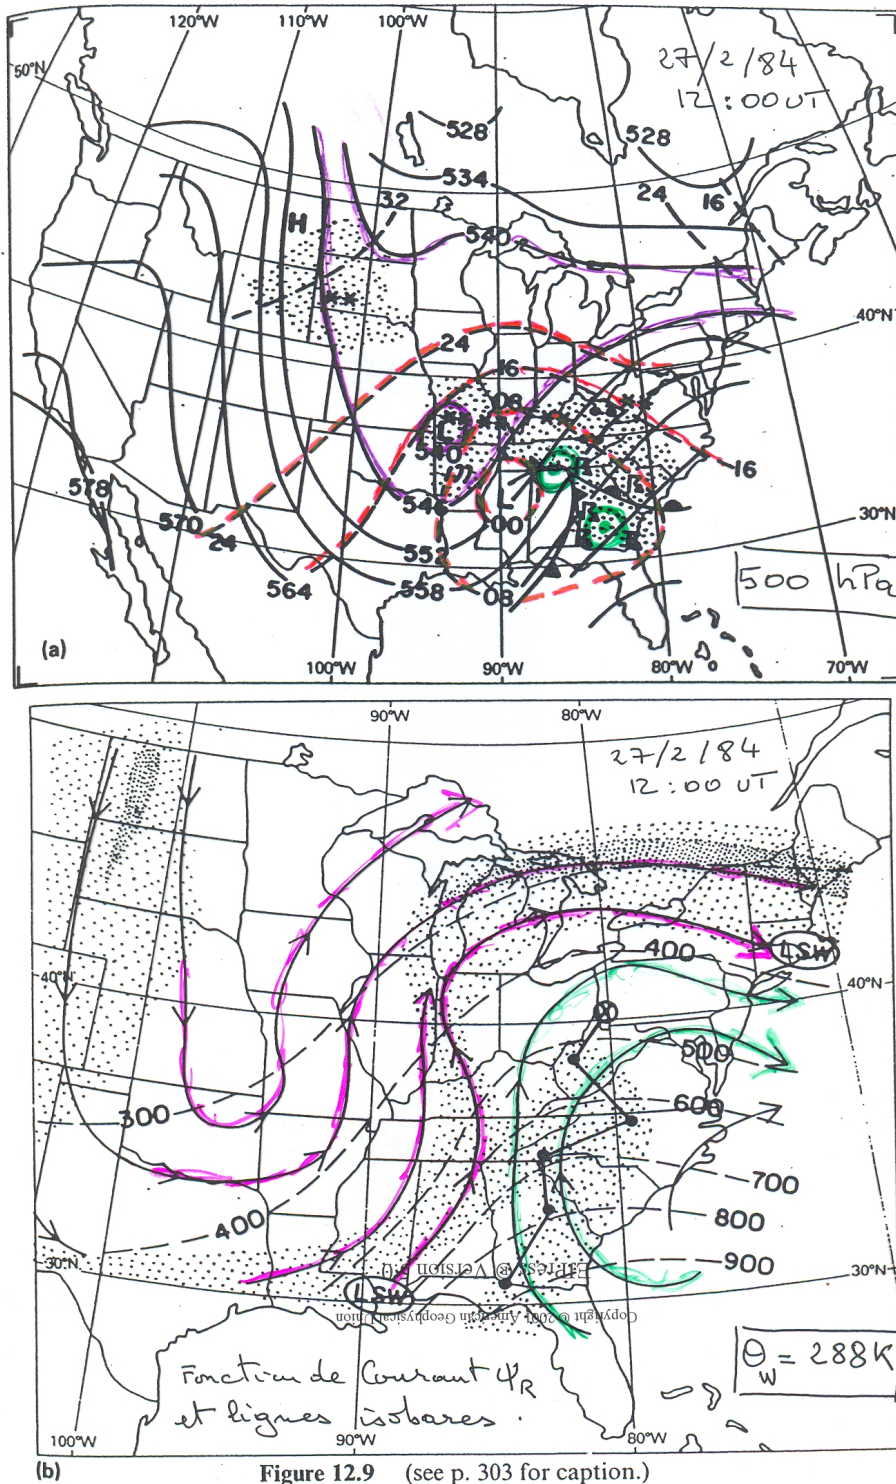 120°W 110°W 100°W
50°N
27/2/84
12:00 UT
528
528
534
32
24
16
H
540
40°N
24
16
08
L
540
16
578
546
L
00
30°N
570
24
552
564
558
08
500 hPa
(a)
100°W 90°W 80°W 70°W
90°W 80°W
27/2/84
12:00 UT
400
LSW
40°N
40°N
500
300
600
700
400
800
900
30°N
30°N
EtPress ® Version 5.0
LSW
Copyright © 2001 American Geophysical Union
θw = 288K
Fonction de Courant ΨR
et lignes isobares.
100°W 90°W 80°W
(b) Figure 12.9 (see p. 303 for caption.)